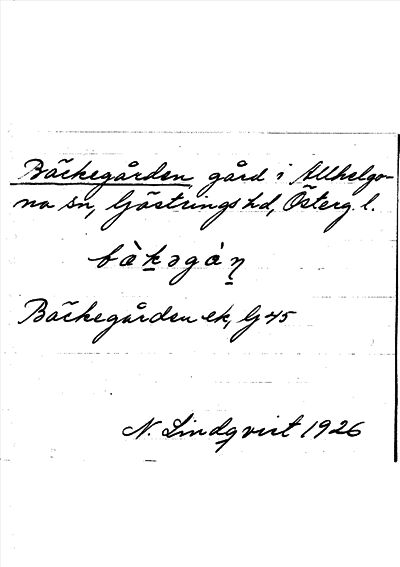 Bäckegården, gård i Allhelgo-
na sn, Göstrings hd, Österg. l.
bä̀k̠əgá̊n̠
Bäckegården ek, G 45
N. Lindqvist 1926